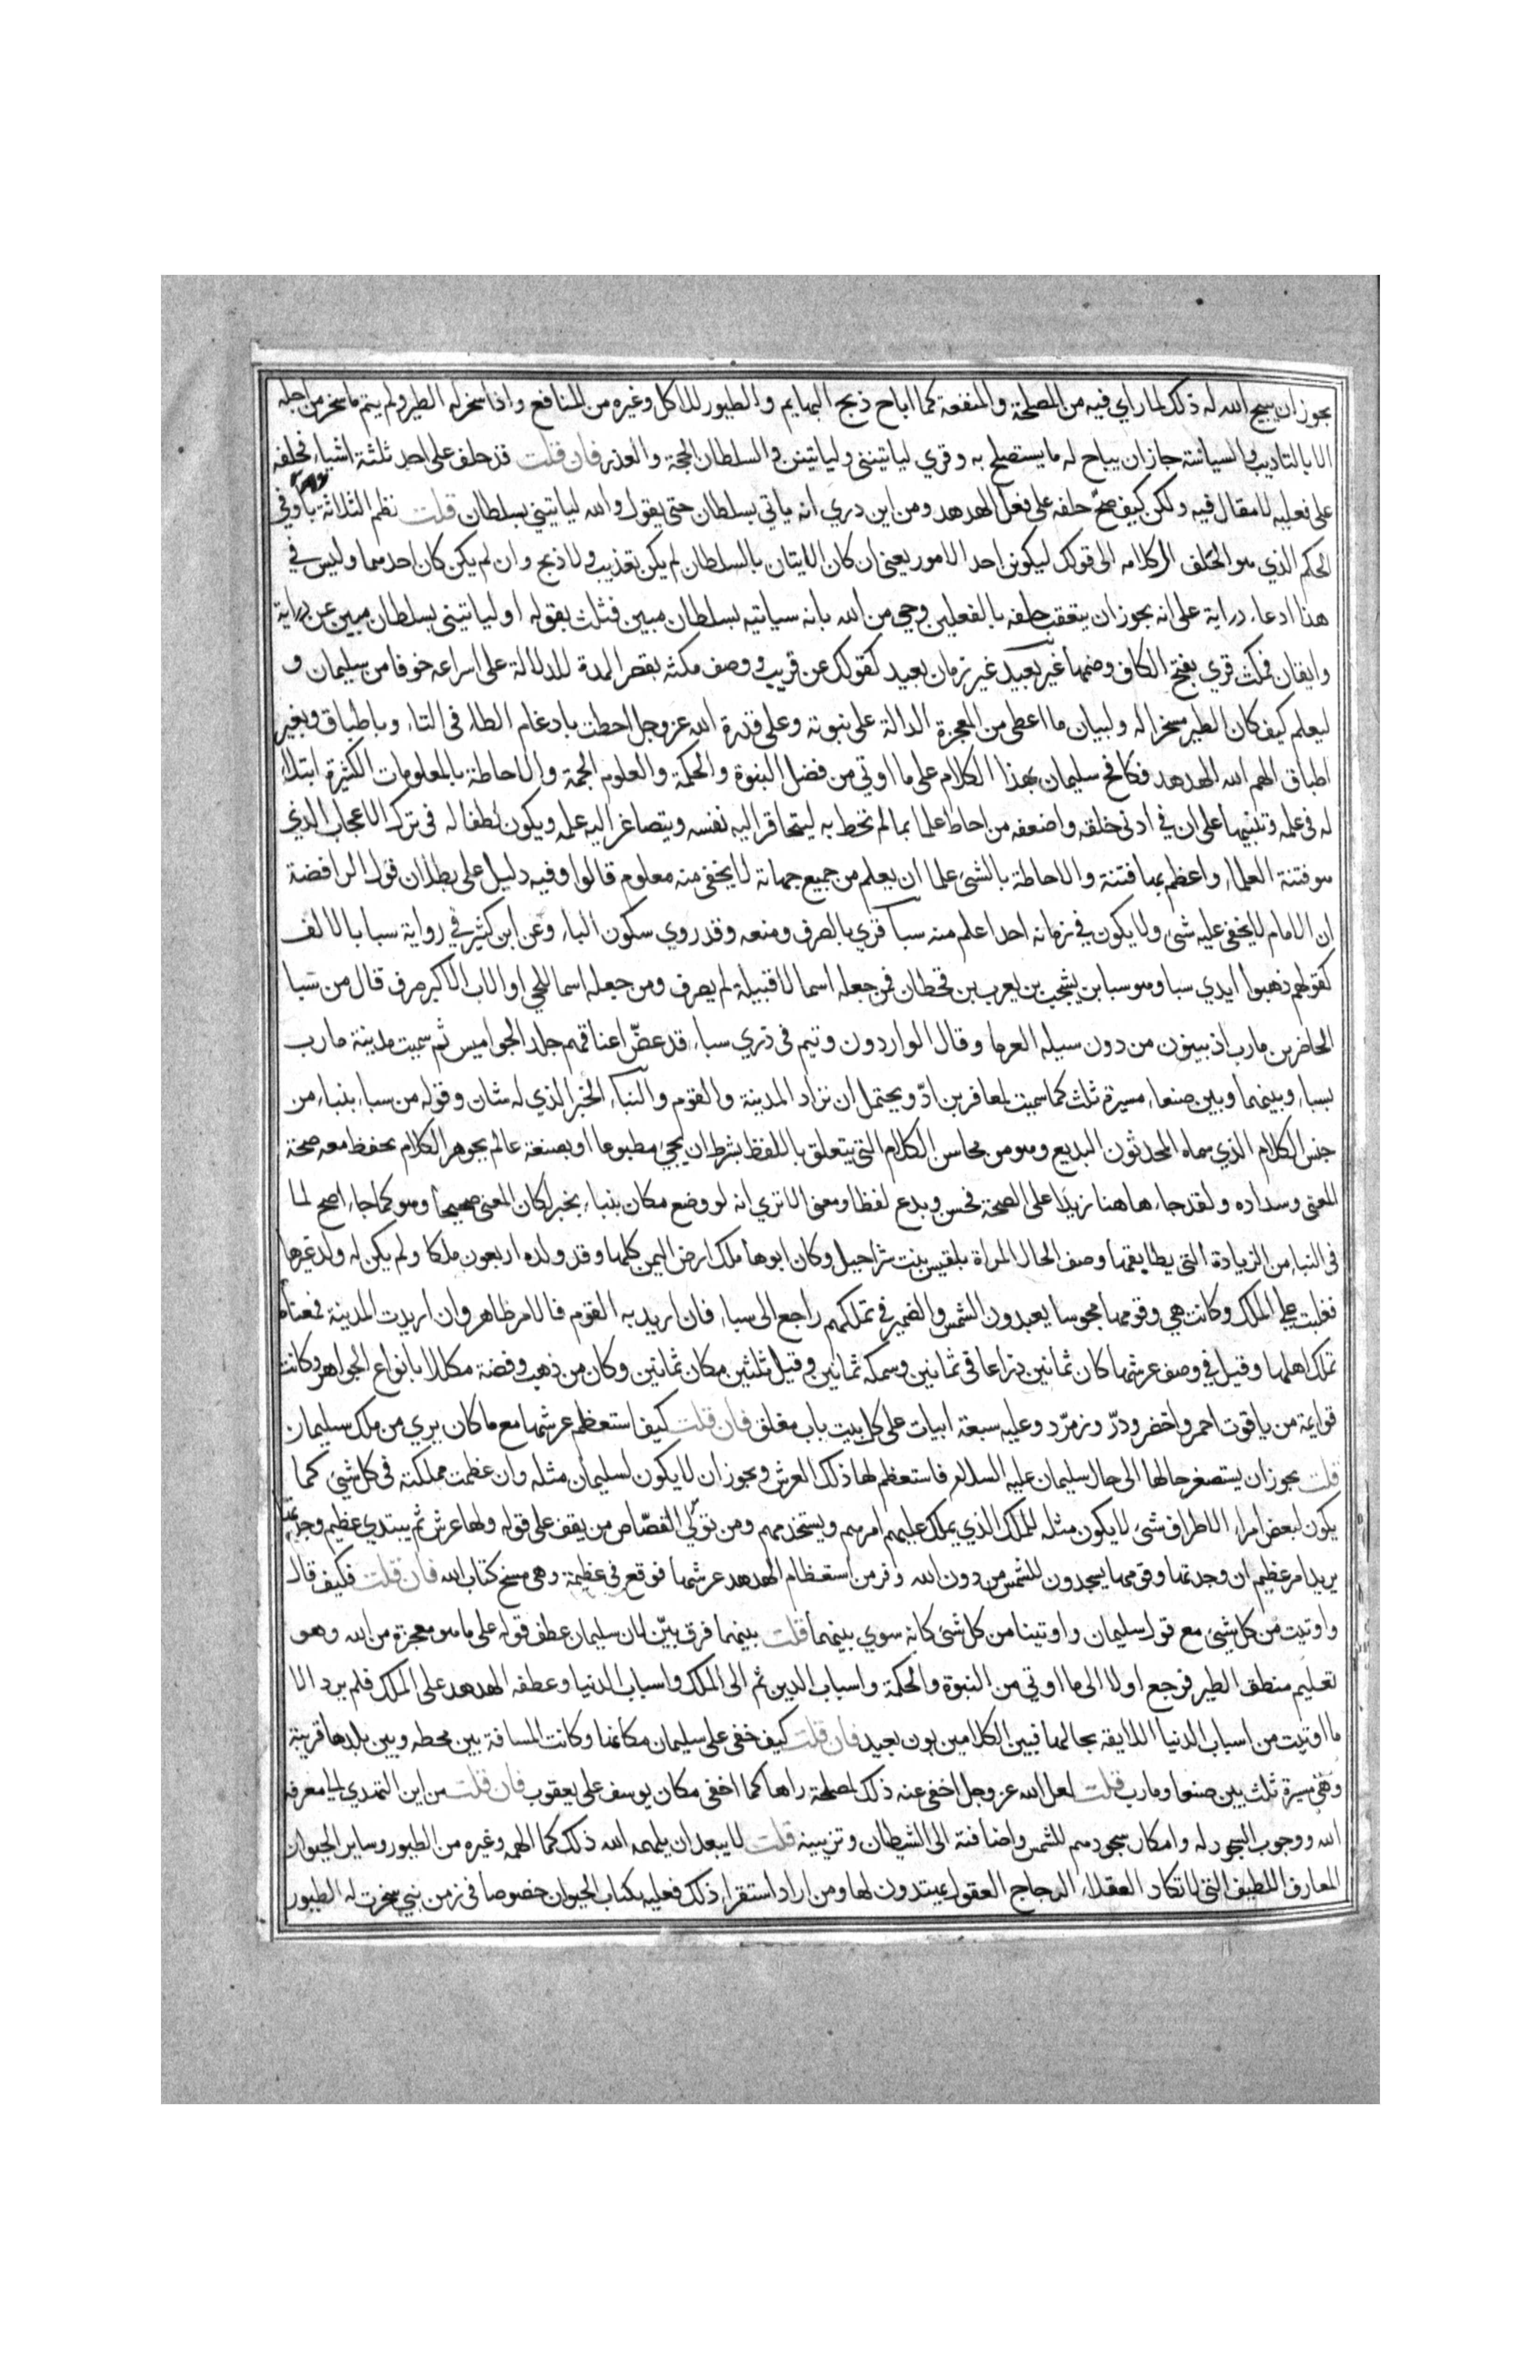 يجوز ان يبيح الله له ذلك لما راي فيه من المصلحة والمنفعة كما اباح ذبح البهايم والطيور للاكل وغيره من المنافع واذا سخر له الطير ولم يتم ما سخر من اجله
الا بالتاديب والسياسة جاز ان يباح له ما يستصلح به وقري لياتينني ولياتينن والسلطان الحجة والعذر فان قلت قد حلف على احد ثلثة اشياء فحلفه
على فعليه لا مقال فيه ولكن كيف صح حلفه على فعل الهدهد ومن اين دري انه ياتي بسلطان حتى يقول والله لياتيني بسلطان قلت نظم الثلاثة باو في
الحكم الذي هو الحلف ال كلامه الى قولك ليكونن احد الامور يعني ان كان الايتان بالسلطان لم يكن تعذيب ولا ذبح وان لم يكن كان احدهما وليس في
هذا ادعاء دراية على انه يجوز ان يتعقب حلفه بالفعلين وحي من الله بانه سياتيه بسلطان مبين فثلث بقوله او لياتيني بسلطان مبين عن دراية
وايقان فمكث قري بفتح الكاف وضمها غير بعيد غير زمان بعيد كقولك عن قريب ووصف مكثه بقصر المدة للدلالة على اسراعه خوفا من سليمان و
ليعلم كيف كان الطير مسخرا له ولبيان ما اعطى من المعجزة الدالة على نبوته وعلى قدرة الله عز وجل احطت بادغام الطاء في التاء وباطباق وبغير
اطباق الهم الله الهدهد فكافح سليمان بهذا الكلام على ما اوتي من فضل النبوة والحكمة والعلوم الجمة والاحاطة بالمعلومات الكثيرة ابتلاء
له في علمه وتنبيها على ان في ادنى خلقه واضعفه من احاط علما بما لم تحط به ليتحاقر اليه نفسه ويتصاغر اليه علمه ويكون لطفا له في ترك الاعجاب الذي
هو فتنة العلماء واعظم بها فتنة والاحاطة بالشيء علما ان يعلم من جميع جهاته لا يخفى منه معلوم قالوا وفيه دليل على بطلان قول الرافضة
ان الامام لا يخفى عليه شيء ولا يكون في زمانه احد اعلم منه سبا قري بالصرف ومنعه وقد روي سكون الباء وعن ابن كثير في رواية سبا بالالف
كقولهم ذهبوا ايدي سبا وهو سبا بن يشجب بن يعرب بن قحطان فمن جعله اسما للقبيلة لم يصرف ومن جعله اسما للحي او الاب الاكبر صرف قال من سبا
الحاضرين مارب اذ يبنون من دون سيله العرما وقال الواردون وتيم في ذري سباء قد عض اعناقهم جلد الجواميس ثم سميت مدينة مارب
بسباء وبينها وبين صنعاء مسيرة ثلث كما سميت بمعافر بن اد ويحتمل ان تراد المدينة والقوم والنباء الخبر الذي له شان وقوله من سباء بنباء من
جنس الكلام الذي سماه المحدثون البديع وهو من محاسن الكلام التي يتعلق باللفظ بشرط ان يجيء مطبوعا او يصنعه عالم بجوهر الكلام يحفظ معه صحة
المعنى وسداده ولقد جاء هاهنا زيدا على الصحة فحسن وبدع لفظا ومعنى الا تري انه لو وضع مكان بنباء بخبر لكان المعنى صحيحا وهو كما جاء اصح لما
في النباء من الزيادة التي يطابقها وصف الحال المراة بلقيس بنت شراحيل وكان ابوها ملك ارض اليمن كلها وقد ولده اربعون ملكا ولم يكن له ولد غيرها
فغلبت على الملك وكانت هي وقومها مجوسا يعبدون الشمس والضمير في تملكهم راجع الى سباء فان اريد به القوم فالامر ظاهر وان اريدت المدينة فمعناه
تملك اهلها وقيل في وصف عرشها كان ثمانين ذراعا في ثمانين وسمكه ثمانين وقيل ثلثين مكان ثمانين وكان من ذهب وفضة مكللا بانواع الجواهر وكانت
قوايمه من ياقوت احمر واخضر ودر وزمرد وعليه سبعة ابيات على كل بيت باب مغلق فان قلت كيف استعظم عرشها مع ما كان يري من ملك سليمان
قلت يجوز ان يستصغر حالها الى حال سليمان عليه السلام فاستعظم لها ذلك العرش ويجوز ان لا يكون لسليمان مثله وان عظمت مملكته في كل شيء كما
يكون لبعض امراء الاطراف شيء لا يكون مثله للملك الذي يملك عليهم امرهم ويستخدمهم ومن نوكى القصاص من يقف على قوله ولها عرش ثم يبتدي عظيم وجدتها
يريد امر عظيم ان وجدتها وقومها يسجدون للشمس من دون الله وفر من استعظام الهدهد عرشها فوقع في عظيمة وهي مسخ كتاب الله فان قلت فكيف قال
واوتيت من كل شيء مع قول سليمان واوتينا من كل شيء كانه سوي بينهما قلت بينهما فرق بين لان سليمان عطف قوله على ما هو معجزة من الله وهو
تعليم منطق الطير فرجع اولا الى ما اوتي من النبوة والحكمة واسباب الدين ثم الى الملك واسباب الدنيا وعطفه الهدهد على الملك فلم يرد الا
ما اوتيت من اسباب الدنيا اللايقة بحالها فبين الكلامين بون بعيد فان قلت كيف خفى على سليمان مكانها وكانت المسافة بين محطه وبين بلدها قريبة
وهي مسيرة ثلث بين صنعا ومارب قلت لعل الله عز وجل اخفى عنه ذلك لمصلحة راها كما اخفى مكان يوسف على يعقوب فان قلت من اين التهدي الى معرفة
الله ووجوب السجود له وامكار سجودهم للشمس واضافته الى الشيطان وتزيينه قلت لا يبعد ان يلهمه الله ذلك كما الهمه وغيره من الطيور وساير الحيوان
المعارف اللطيف التي لا تكاد العقلاء الرجاح العقول يهتدون لها ومن اراد استقراء ذلك فعليه بكتاب الحيوان خصوصا في زمن نبي سخرت له الطيور